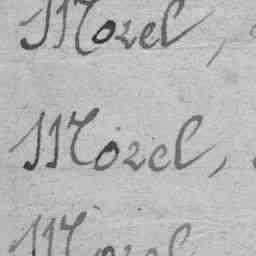 Morel,
Morel,
Morel